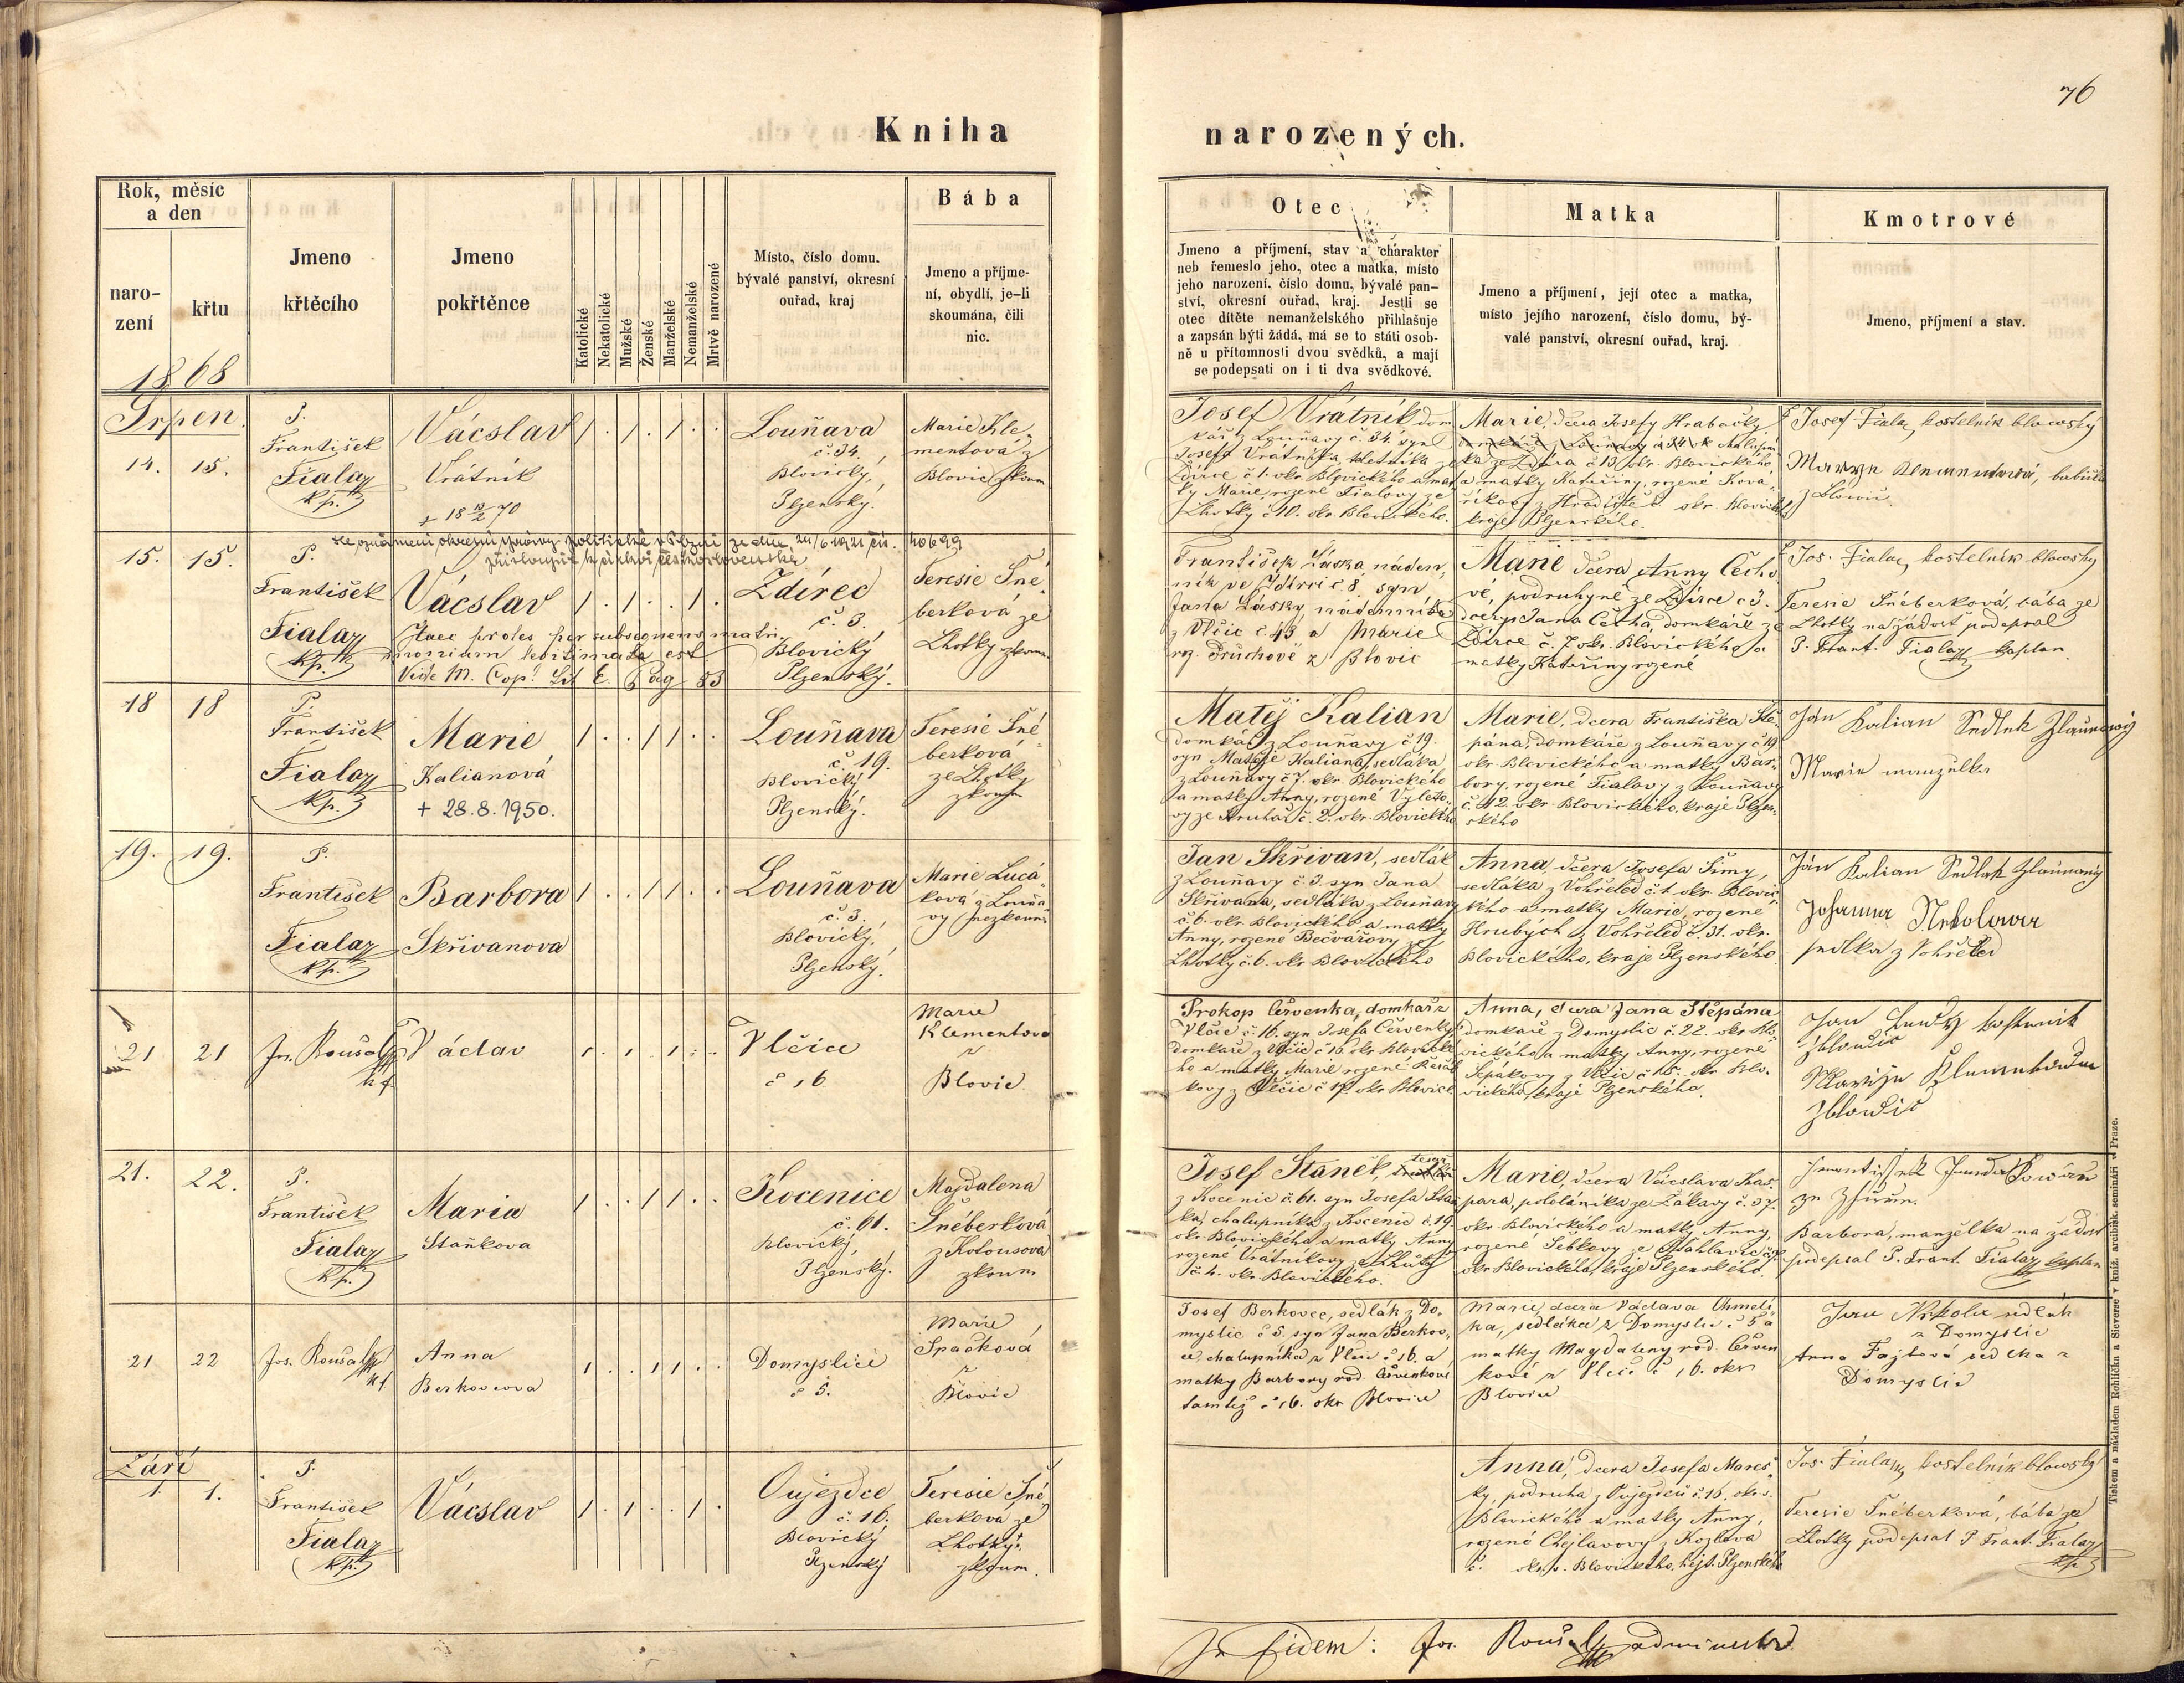 76
Kniha narozených.
Rok, měsíc
a den
naro-
zení
křtu
1868
Jmeno
křtěcího
Jmeno
pokřtěnce
Katolické
Nekatolické
Mužské
Ženské
Manželské
Nemanželské
Mrtvě narozené
Místo, číslo domu.
bývalé panství, okresní
ouřad, kraj
Bába
Jmeno a příjme-
ní, obydlí, je-li
skoumána, čili
nic.
Otec
Jmeno a příjmení, stav a charakter
neb řemeslo jeho, otec a matka, místo
jeho narození, číslo domu, bývalé pan-
ství, okresní ouřad, kraj. Jestli se
otec dítěte nemanželského přihlašuje
a zapsán býti žádá, má se to státi osob-
ně u přítomnosti dvou svědků, a mají
se podepsati on i ti dva svědkové.
Matka
Jmeno a příjmení, její otec a matka,
místo jejího narození, číslo domu, bý-
valé panství, okresní ouřad, kraj.
Kmotrové
Jmeno, příjmení a stav.
Srpen
14. 15.
P.
František
Fiala
kp.
Vácslav
Vrátník
Louňava
č. 34.
Blovický,
Plzenský.
Marie Kle-
mentová z
Blovic zkoum
Josef Vrátník dom
kář z Louňavy č. 34. syn
Josefa Vrátníka
Ždírce č. 1. okr. Blovického a mat
ky Marie, rozené Fialovy ze
Lhotky č. 10. okr. Blovického.
Marie, dcera Josefa Hrabačky
ka ze Ždírce č 13 okr. Blovického,
a matky Kateřiny, rozené Kova-
říkovy z Hradiště okr. Blovick
kraje Plzenského.
Josef Fiala, kostelník blowský
z Blowic
15. 15.
P.
František
Fiala
kp.
Vácslav
Haec proles per subsequens matri-
monium legitimata est
Vide M. Cop. Lit E. pag 83
Ždírec
č. 3.
Blovický
Plzenský.
Teresie Šné
berková ze
Lhotky zkoum.
František Láska náden
ník ve Ždírci č 8 syn
Jana Lásky, nádenníka
z Vlčic č. 43 a Marie
z Blovic
Marie dcera Anny Čecho
vé, podruhyně ze Ždírce č 3.
dcery Jana Čecha, domkáře ze
Ždírce č. 7 okr. Blovického a
matky Kateřiny rozené
Jos. Fiala, kostelník blowský
Teresie Šnéberková, bába ze
Lhotky na žádost podepsal
P. Frant. Fiala kaplan.
18 18
P.
František
Fiala
kp.
Marie
Kalianová
+ 28.8.1950.
Louňava
č. 19.
Blovický
Plzenský.
Teresie Šné
berková
ze Lhotky
zkoum
Matěj Kalian
domkář z Louňavy č 19.
syn Matěje Kaliana, sedláka
z Louňavy č 7. okr. Blovického
a matky Anny, rozené Vyleto-
č. 2. okr. Blovického
Marie, dcera Františka Ště-
pána, domkáře z Louňavy č 19
okr Blovického a matky Bar-
bory, rozené Fialovy z Louňavy
č. 12. okr. Blovického, kraje Plzen-
ského
Ján Kalian Sedlak
19. 19.
P.
František
Fiala
kp.
Barbora
Skřivanova
Louňava
č. 3.
Blovický,
Plzenský.
Marie Lucá
ková z Louňa
vy nezkoum
Jan Skřivan, sedlák
z Louňavy č. 3. syn Jana
Skřivana, sedláka z Louňavy
č. 6. okr. Blovického a matky
Anny, rozené Bečvářovy ze
Lhotky č. 6. okr. Blovického
Anna, dcera Josefa Šimy,
sedláka z Vohřeled č. 1. okr. Blovic-
kého a matky Marie, rozené
Hrubých z Vohřeled č. 31. okr.
Blovického, kraje Plzenského
Ján Kalian Sedlak
Johanna
sedlka z Vohřeled
21 21
Jos. Roušal
Václav
Vlčice
č 16
Marie
Klementova
z
Blovic.
Prokop Červenka, domkář z
Vlčic č 16. syn Josefa Červenky,
domkáře z Vlčic č 16. okr Blovické
ho a matky Marie rozené
kovy z Vlčic č 17. okr Blovick
Anna, dcera Jana Štěpána
domkáře z Domyslic č. 22. okr Blo
vického a matky Anny, rozené
z Vlčic č 15. okr. Blo-
vického, kraje Plzenského.
21. 22.
P.
František
Fiala
kp.
Maria
Staňkova
Kocenice
č. 61.
Blovický,
Plzenský.
Magdalena
Šnéberková
z Kotousova
zkoum
Josef Staněk, tesař
z Kocenic č. 61. syn Josefa Staň
ka, chalupníka z Kocenic č. 19.
okr. Blovického a matky Anny
rozené Vrátníkovy ze Lhůty
č. 4. okr. Blovického.
Marie, dcera Vácslava Kaš-
para, pololáníka ze Žákavy č. 37.
okr. Blovického a matky Anny,
rozené Šebkovy ze Šťáhlavic
okr. Blovického, kraje Plzenského.
Barbora, manželka na žádost
podepsal P. Frant. Fiala kaplan
21 22
Jos. Roušal
Anna
Berkovcova
Domyslice
č 5.
Marie
Špačková
z
Blovic
Josef Berkovce, sedlák z Do-
myslic č 5. syn Jana Berkov-
ce, chalupníka z Vlčic č 16. a
matky Barbory rod. Červenkové
tamtéž č 16. okr Blovice
Marie, dcera Václava Chmelí
ka, sedláka z Domyslic č 5 a
matky Magdaleny rod Červen
kové z Vlčic č 16. okr
Blovice
Jan sedlák
z Domyslic
Anna Fajtová sedlka z
Domyslic
Září
1. 1.
P.
František
Fiala
kp.
Vácslav
Oujezdce
č. 16.
Blovický
Plzenský
Teresie Šné
berková ze
Lhotky.
zkoum.
Anna, dcera Josefa Mareš-
ky, podruha z Oujezdců č. 16. okr.
Blovického a matky Anny,
rozené Chejlavovy z Kozlova
č. okr. Blovického, hejt. Plzenského
Jos. Fiala, kostelník blowský
Teresie Šnéberková, bába ze
Lhotky podepsal P Frant. Fiala
kp.
In fidem: Jos. Roušal administr.
Tiskem a nákladem Rohlíčka a Sieverse v kníž. arcibisk. semináři v Praze.